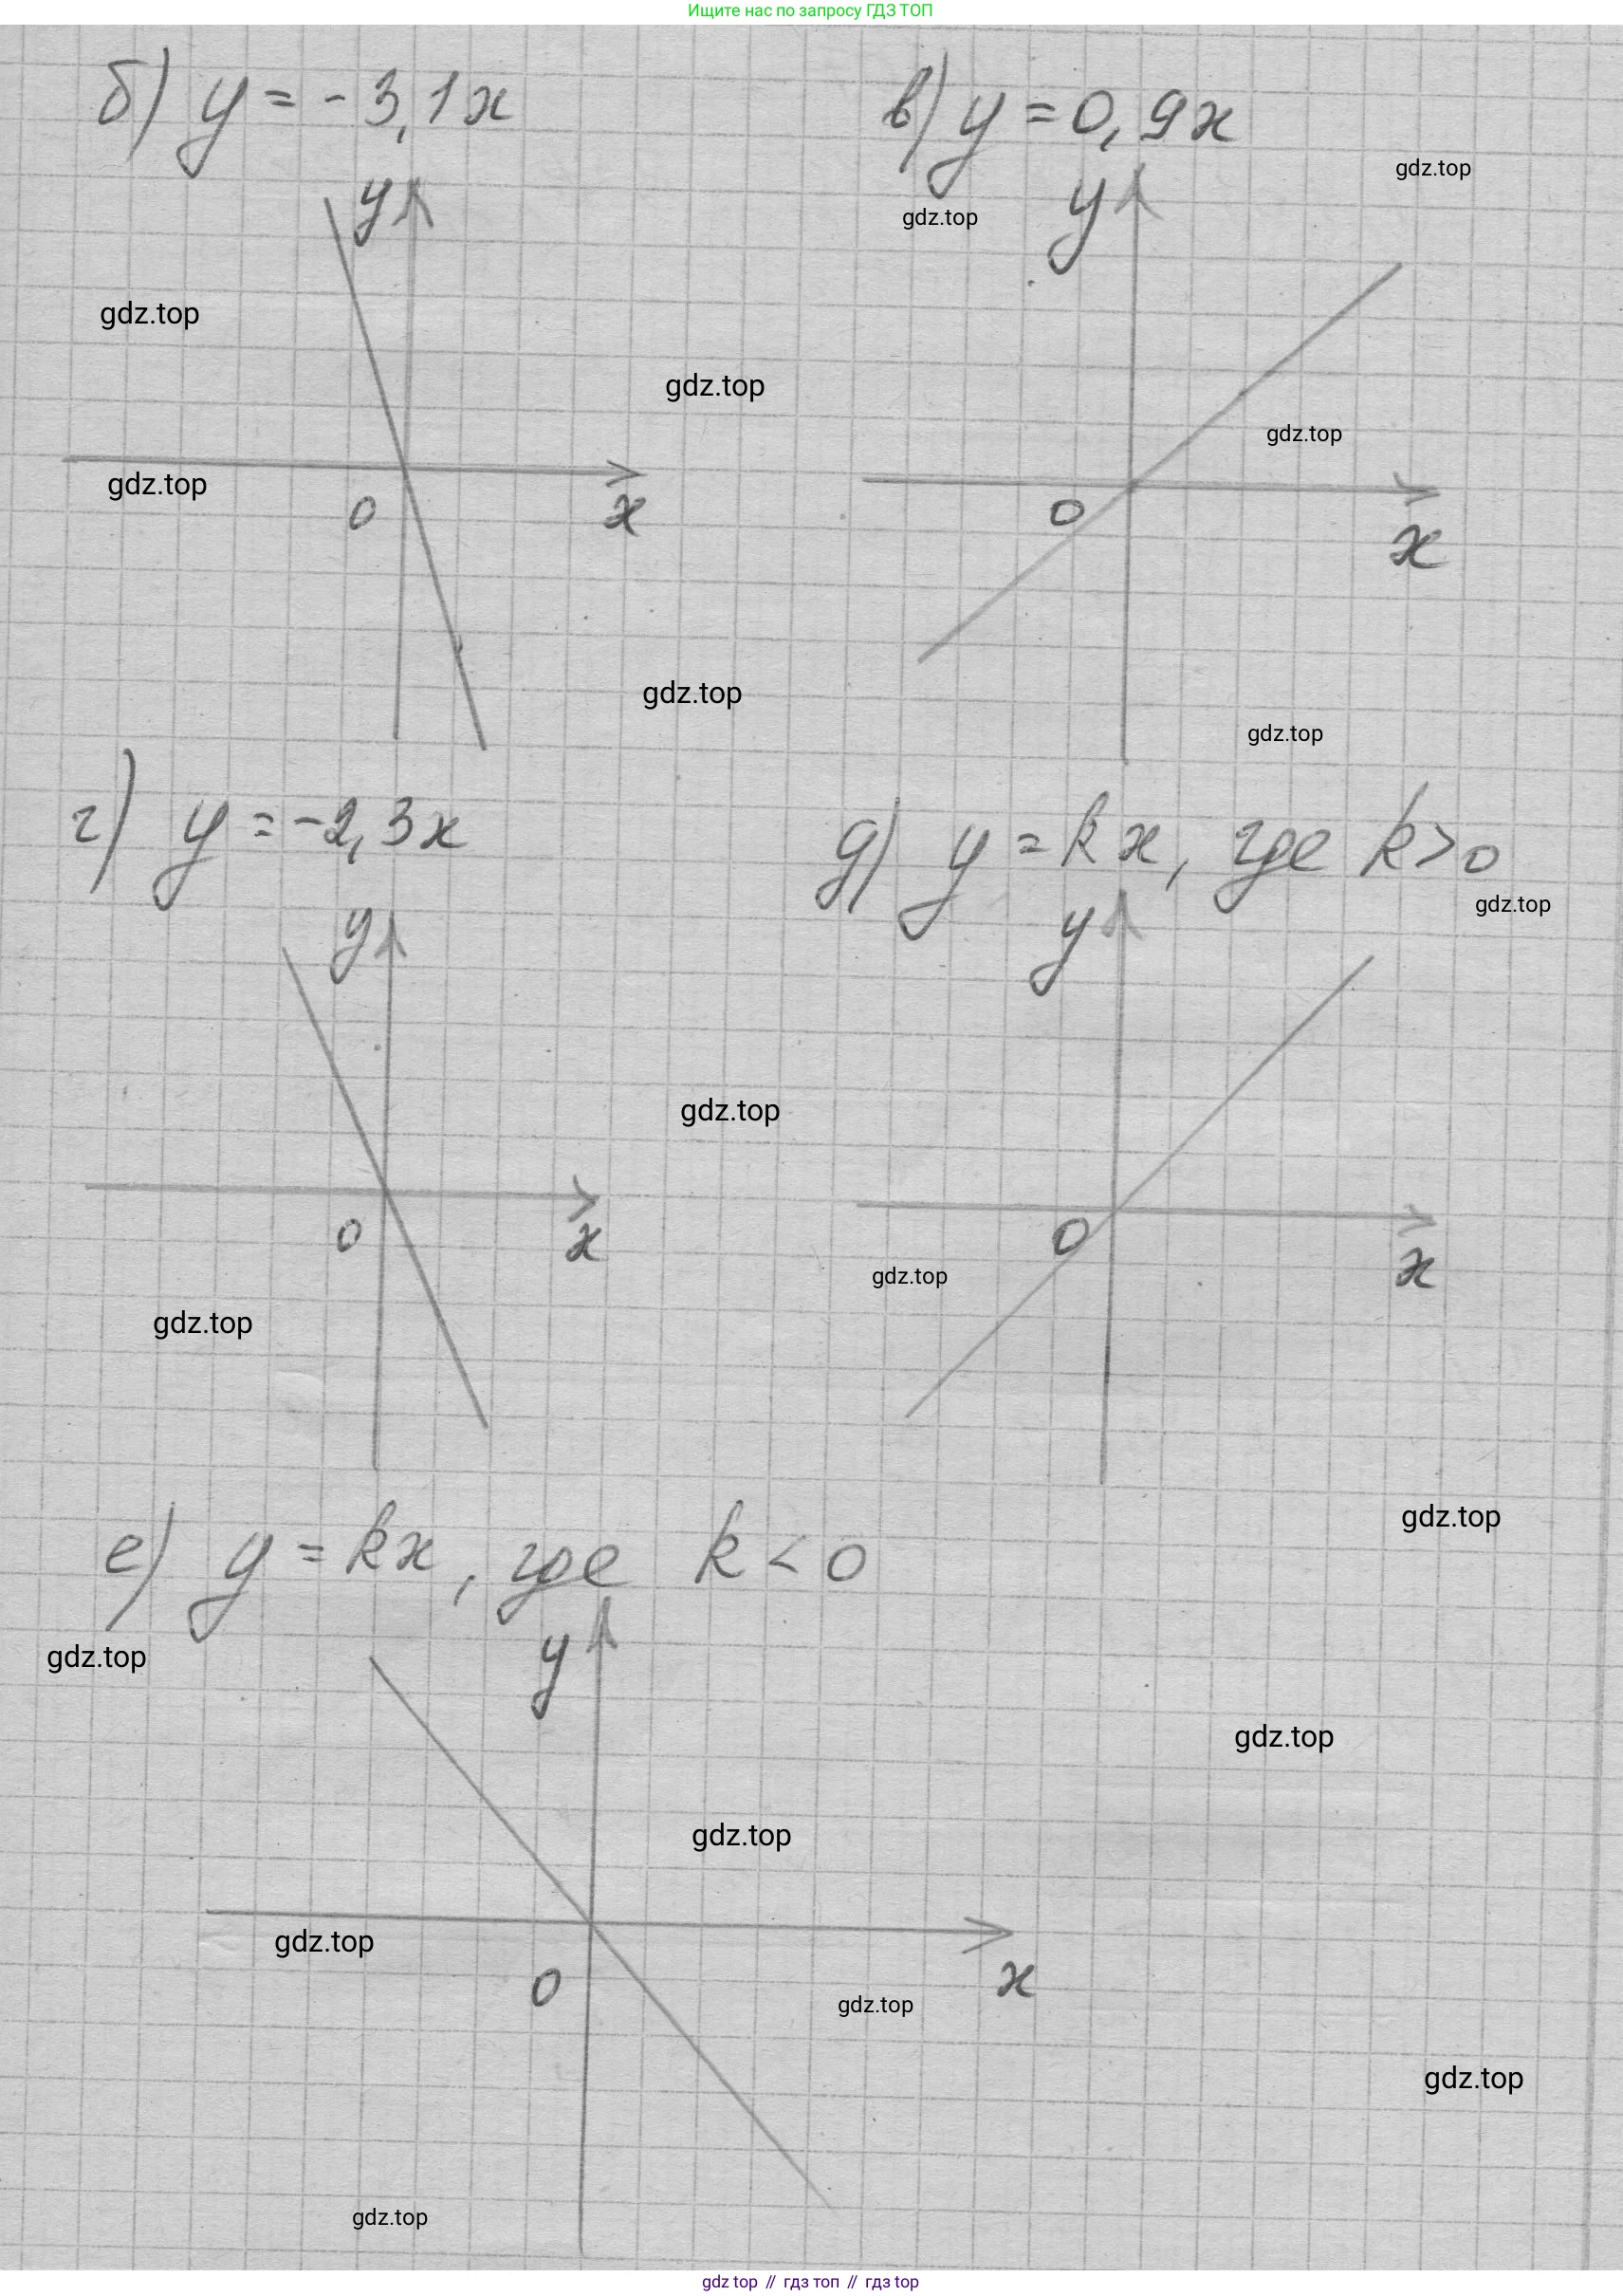 Ищите нас по запросу ГДЗ ТОП
б) y = -3,1x
в) y = 0,9x
gdz.top
gdz.top
y
y
gdz.top
gdz.top
gdz.top
gdz.top
0
x
0
x
gdz.top
gdz.top
г) y = -2,3x
д) y = kx, где k > 0
gdz.top
y
y
gdz.top
0
x
0
x
gdz.top
gdz.top
е) y = kx, где k < 0
gdz.top
gdz.top
y
gdz.top
gdz.top
gdz.top
0
x
gdz.top
gdz.top
gdz.top
gdz top // гдз топ // гдз top